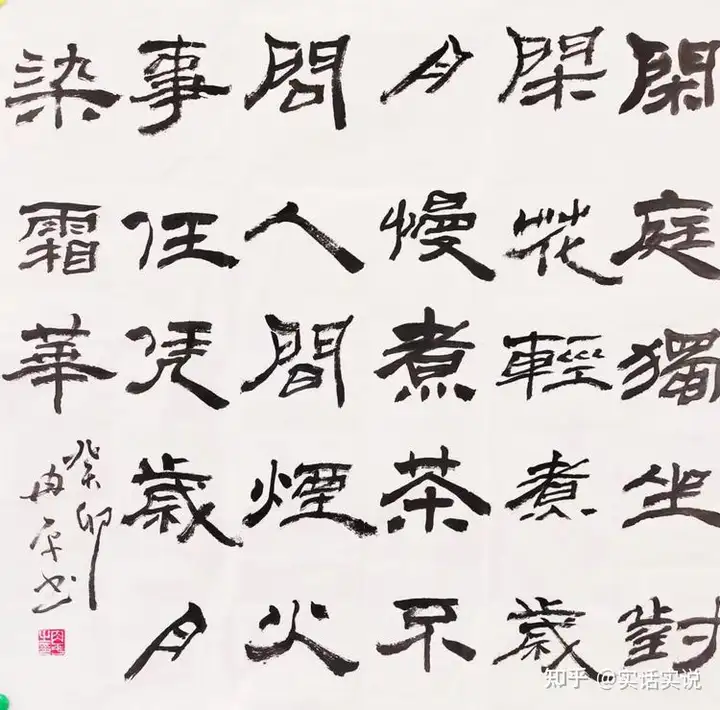 閑庭獨坐對
閑花輕煮歲
月慢煮茶不
問人間煙火
事任凭歲月
染霜華
癸卯
书
知乎 @实话实说